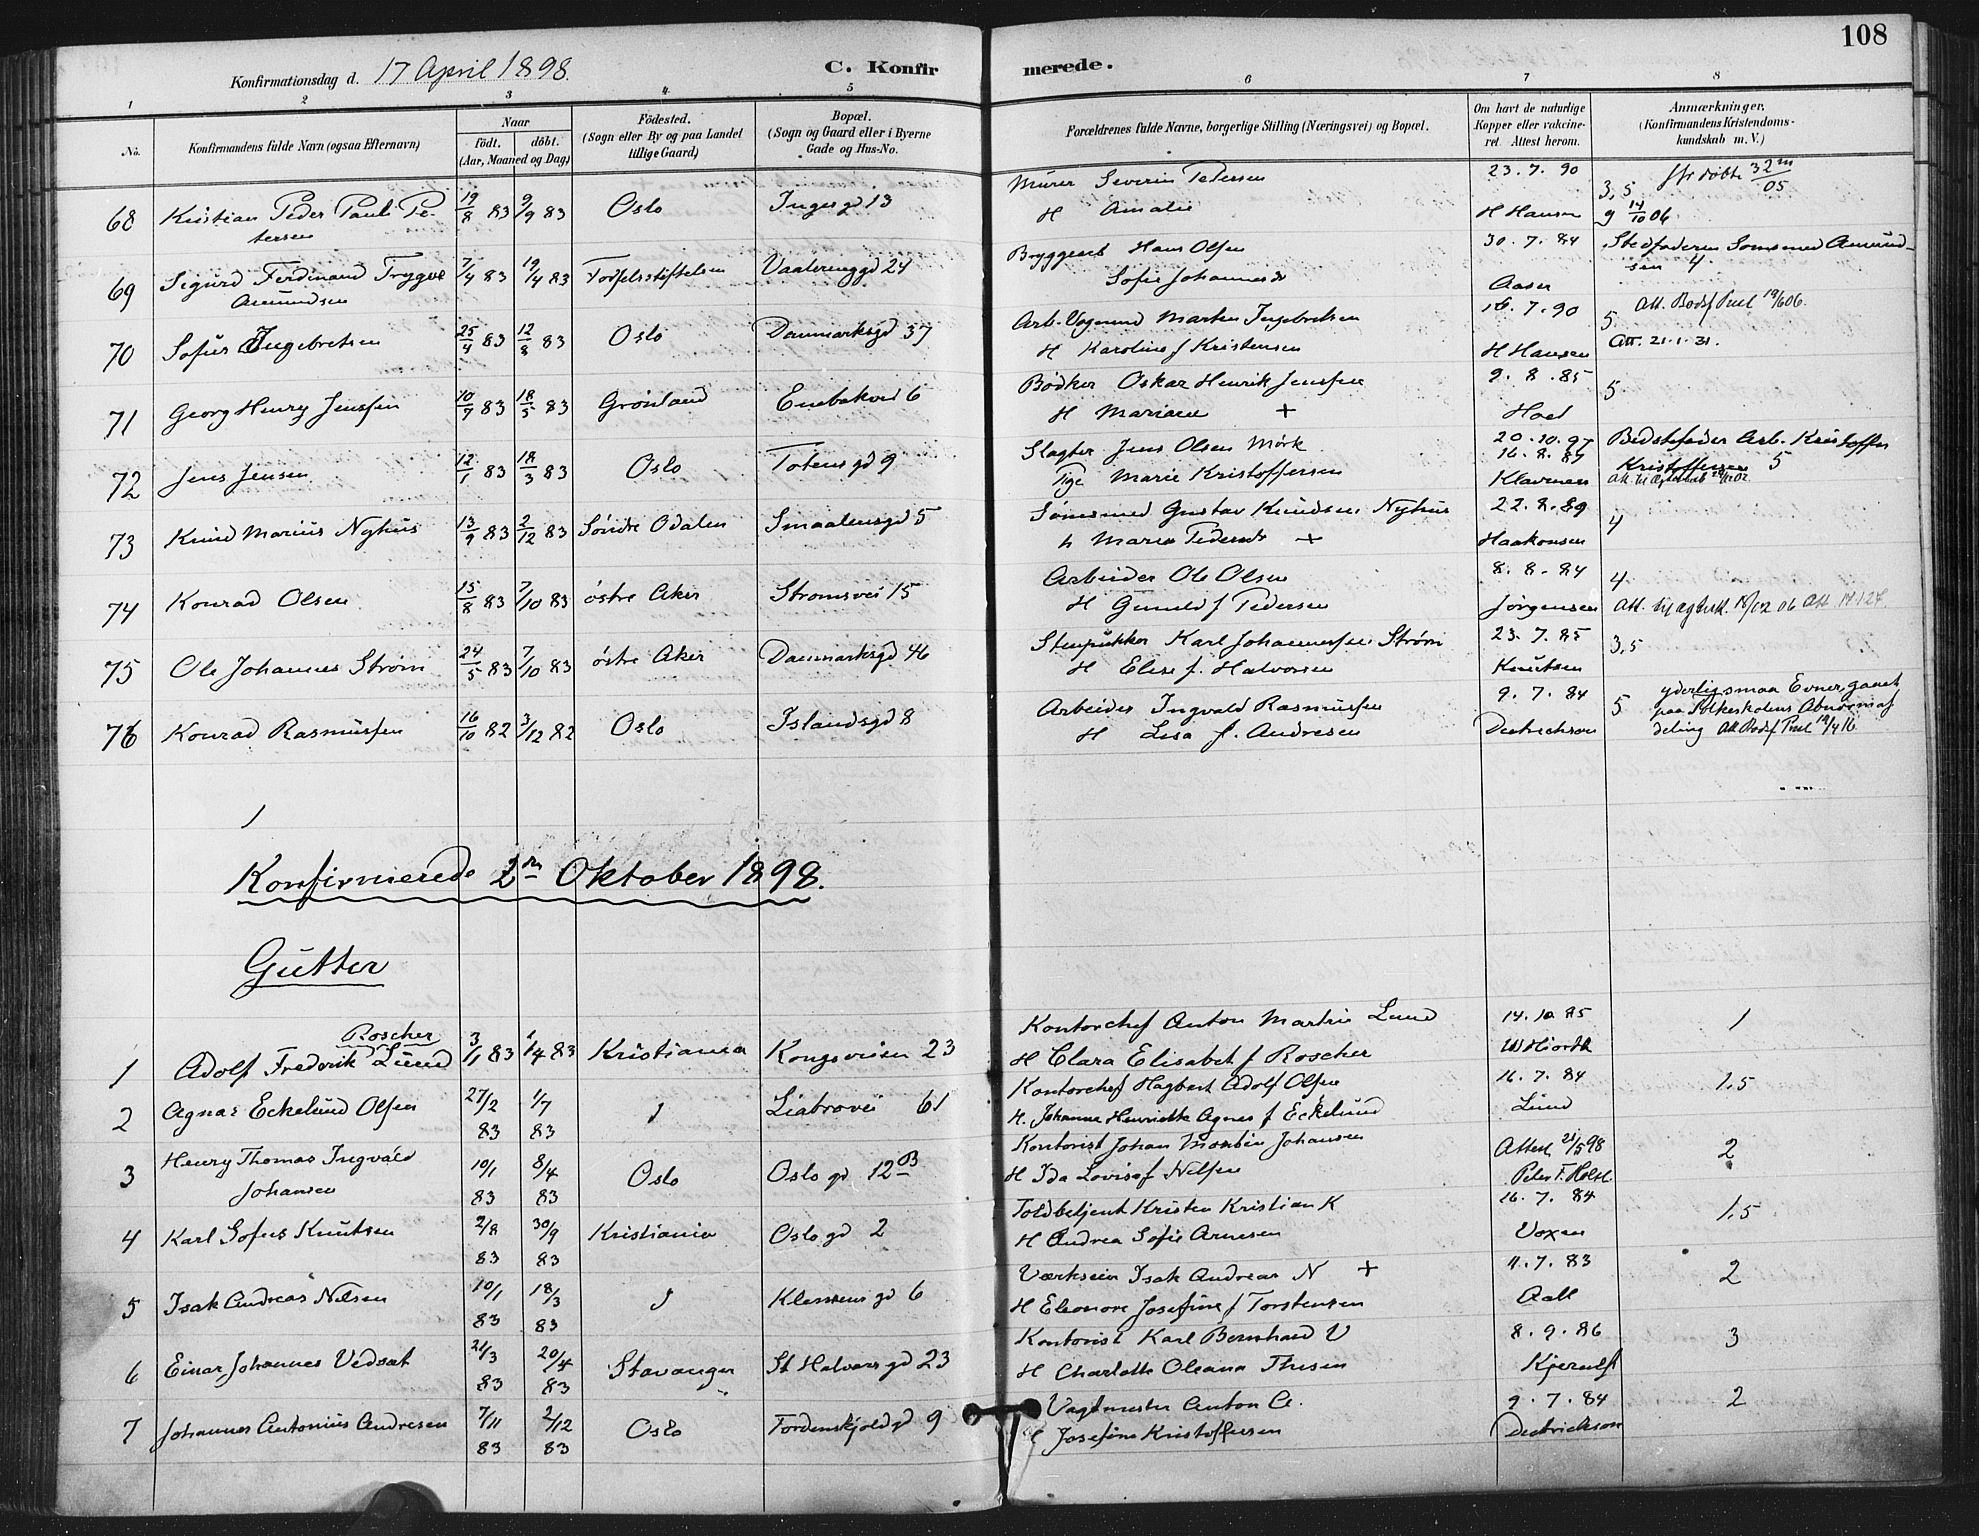 108
Konfirmationsdag d. 17 April 1898.
C. Konfirmerede.
1 2 3 4 5 6 7 8
No.
Konfirmandens fulde Navn (ogsaa Efternavn)
Naar
födt. döbt.
(Aar, Maaned og Dag)
Födested.
(Sogn eller By og paa Landet
tillige Gaard)
Bopæl.
(Sogn og Gaard eller i Byerne
Gade og Hus-No.
Forældrenes fulde Navne, borgerlige Stilling (Næringsvei) og Bopæl.
Om havt de naturlige
Kopper eller vakcine-
ret. Attest herom.
Anmærkninger.
(Konfirmandens Kristendoms-
kundskab m. V.)
68 Kristian Peder Paul Pe- 19/8 83 9/9 83 Oslo Ingersgd 13 Murer Severin Pedersen 23.7.90 3,5
tersen H Amalie H Hansen 14/10 06
69 Sigurd Ferdinand Trygve 7/4 83 19/4 83 Fødselsstiftelsen Vaalerenggd 24 Hans Olsen 30.7.84 Stedfaderen Amund-
Amundsen Sofie Johannesd Aaser sen 4.
70 Sofus Ingebretsen 25/4 83 12/8 83 Oslo Danmarksgd 37 Arb. Martin Ingebretsen 16.7.90 5 Att. Bodsf
H Karoline f Kristensen H Hansen Att. 21.1.31.
71 Georg Henry Jenssen 10/9 83 18/5 83 Grönland Enebakvei 6 Bödker Oskar Henrik Jenssen 9.8.85 5
H Mariane + Hoel
72 Jens Jensen 12/1 83 18/3 83 Oslo Totensgd 9 Slagter Jens Olsen Mörk 20.10.97 Bedstefader Arb. Kristoffer
16.8.87
Pige Marie Kristoffersen Klavenes Kristoffersen 5
73 Knud Marius Nyhus 13/9 83 2/12 83 Söndre Odalen Smaalensgd 5 Gustav Knudsen Nyhus 22.8.89 4
h Maren Pedersd + Haakonsen
74 Konrad Olsen 15/8 83 7/10 83 östre Aker Strömsvei 15 Arbeider Ole Olsen 8.8.84 4
H Gunild f Pedersen Jörgensen
75 Ole Johannes Ström 24/5 83 7/10 83 östre Aker Danmarksgd 46 Stenpukker Karl Johannessen Ström 23.7.85 3,5
H Elise f. Halvorsen Knutsen
76 Konrad Rasmussen 16/10 82 3/12 82 Oslo Islandsgd 8 Arbeider Ingvald Rasmussen 9.7.84 5 yderlig smaa Evner, gaaet
H Lisa f. Andresen Dedrichson paa Folkeskolens Abnormaf
deling
Konfirmerede 2en Oktober 1898.
Gutter
Roscher
1 Adolf Fredrik Lund 3/1 83 1/4 83 Kristiania Kongsveien 23 Kontorchef Anton Martin Lund 14.10.85 1
H Clara Elisabet f Roscher W Hiorth
2 Agnar Eckelund Olsen 27/2 83 1/7 83 Liabrovei 61 Kontorchef Hagbart Adolf Olsen 16.7.84 1,5
H. Johanna Henriette Agnes f Eckelund Lund
3 Henry Thomas Ingvald 10/1 83 8/4 83 Oslo Oslo gd 12 B Kontorist Johan Johansen Attest 21/5 98 2
Johansen H Ida Lovise f Nilsen Peter F. Holst
4 Karl Sofus Knutsen 2/8 83 30/9 83 Kristiania Oslo gd 2 Toldbetjent Kristen Kristian K 16.7.84 1,5
H Andrea Sofie Arnesen Voxen
5 Isak Andreas Nilsen 10/1 83 18/3 83 6 Isak Andreas N + 11.7.83 2
H Eleonore Josefine f Torstensen Aall
6 Einar Johannes Vedsat 21/3 83 20/4 83 Stavanger St Halvars gd 23 Kontorist Karl Bernhard V 8.9.86 3
H Charlotte Oleana Thisen Kjerulf
7 Johannes Antonius Andresen 7/11 83 2/12 83 Oslo Tordenskjold gd 9 Vagtmester Anton A. 9.7.84 2
H Josefine Kristoffersen Dedrickson